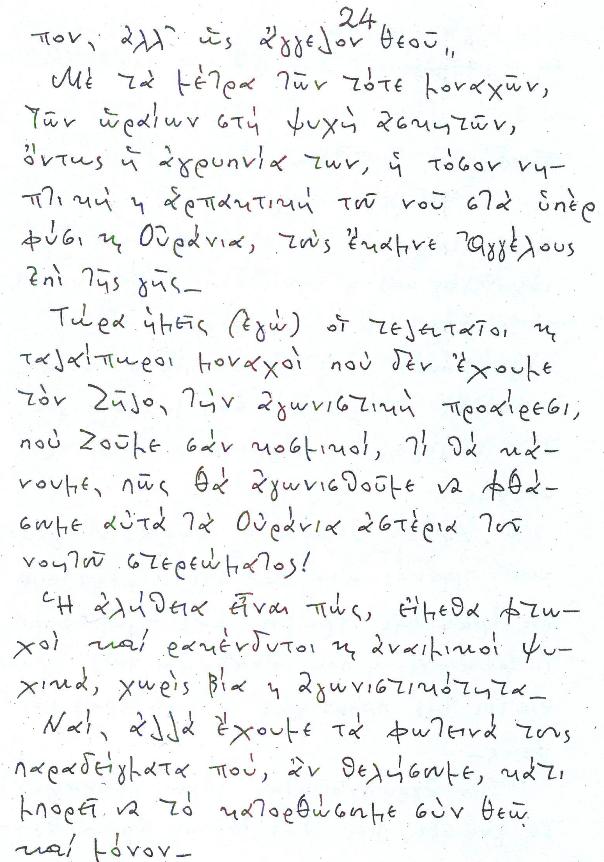 24
πον, ἀλλ' ὡς ἄγγελον Θεοῦ„
Μὲ τὰ μέτρα τῶν τότε μοναχῶν,
τῶν ὡραίων στή ψυχή ἀσκητῶν,
ὄντως ἡ ἀγρυπνία των, ἡ τόσον νη-
πτική κ ἁρπακτική τοῦ νοῦ στὰ ὑπὲρ
φύσι κ Οὐράνια, τοὺς ἔκαμνε Ἀγγέλους
ἐπὶ τῆς γῆς_
Τώρα ἡμεῖς (ἐγώ) οἱ τελευταῖοι κ
ταλαίπωροι μοναχοὶ ποὺ δὲν ἔχουμε
τὸν Ζῆλο, τήν ἀγωνιστική προαίρεσι,
ποὺ ζοῦμε σάν κοσμικοί, τί θὰ κά-
νουμε, πῶς θὰ ἀγωνισθοῦμε νὰ φθά-
σωμε αὐτὰ τὰ Οὐράνια ἀστέρια τοῦ
νοητοῦ στερεώματος!
Ἡ ἀλήθεια εἶναι πώς, εἴμεθα φτω-
χοὶ καί ρακένδυτοι κ ἀναιμικοί ψυ-
χικά, χωρὶς βία κ ἀγωνιστικότητα_
Ναί, ἀλλά ἔχουμε τά φωτεινά τους
παραδείγματα πού, ἂν θελήσωμε, κάτι
μπορεῖ νὰ τό κατορθώσωμε σὺν Θεῷ
καί μόνον_